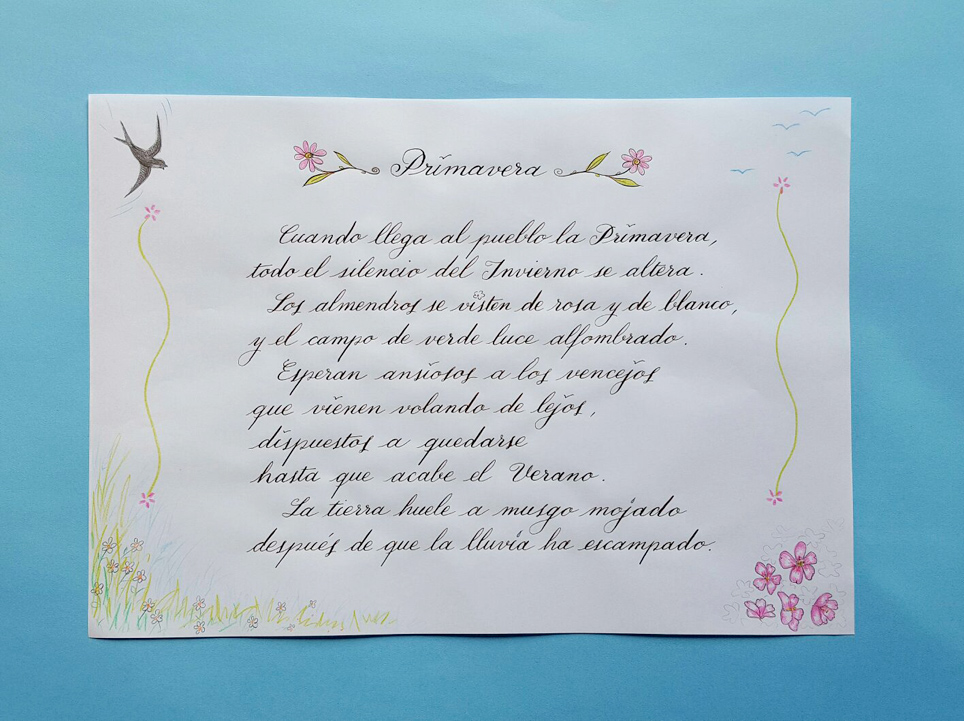 Primavera
Cuando llega al pueblo la Primavera,
todo el silencio del Invierno se altera.
Los almendros se visten de rosa y de blanco,
y el campo de verde luce alfombrado.
Esperan ansiosos a los vencejos
que vienen volando de lejos,
dispuestos a quedarse
hasta que acabe el Verano.
La tierra huele a musgo mojado
después de que la lluvia ha escampado.